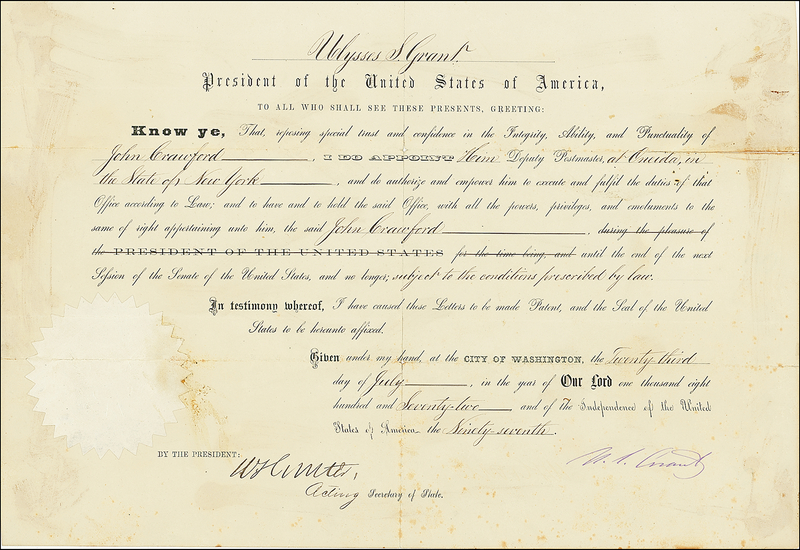 Ulysses S. Grant.
President of the United States of America,
TO ALL WHO SHALL SEE THESE PRESENTS, GREETING:
Know ye, That, reposing special trust and confidence in the Integrity, Ability, and Punctuality of
John Crawford, I DO APPOINT Him Deputy Postmaster, at Oneida, in
the State of New York, and do authorize and empower him to execute and fulfil the duties of that
Office according to Law; and to have and to hold the said Office, with all the powers, privileges, and emoluments to the
same of right appertaining unto him, the said John Crawford, during the pleasure of
the PRESIDENT OF THE UNITED STATES for the time being, and until the end of the next
Session of the Senate of the United States, and no longer; subject to the conditions prescribed by law.
In testimony whereof, I have caused these Letters to be made Patent, and the Seal of the United
States to be hereunto affixed.
Given under my hand, at the CITY OF WASHINGTON, the Twenty-third
day of July, in the year of Our Lord one thousand eight
hundred and Seventy-two and of The Independence of the United
States of America the Ninety-seventh.
BY THE PRESIDENT:
U. S. Grant
Acting Secretary of State.